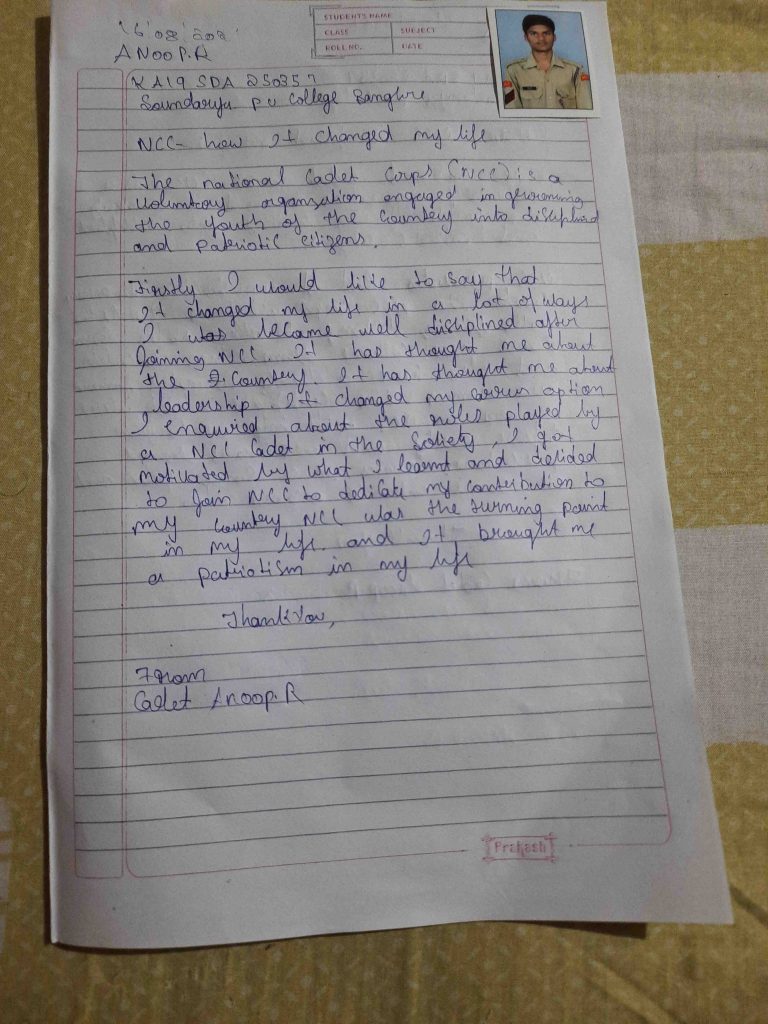 STUDENTS NAME
CLASS SUBJECT
ROLL NO. DATE
ANOOP.R
KA19 SDA 250357
Soundarya PU College Banglre
NCC- how It changed my life
The national Cadet Corps (NCC) is a
organization engaged in grooming
the youth of the Country into
and patriotic citizens.
Firstly I would like to say that
It changed my life in a lot of ways
I was became well disiplined after
Joining NCC. It has thought me about
the Country. It has thought me about
leadership. It changed my option
I enquired about the roles played by
a NCC Cadet in the Soliety, I got
motivated by what I learnt and decided
to Join NCC to dedicate my contribution to
my country NCC was the turning point
in my life and It brought me
a patriotism in my life
Thank You,
From
Cadet Anoop.R
Prakash